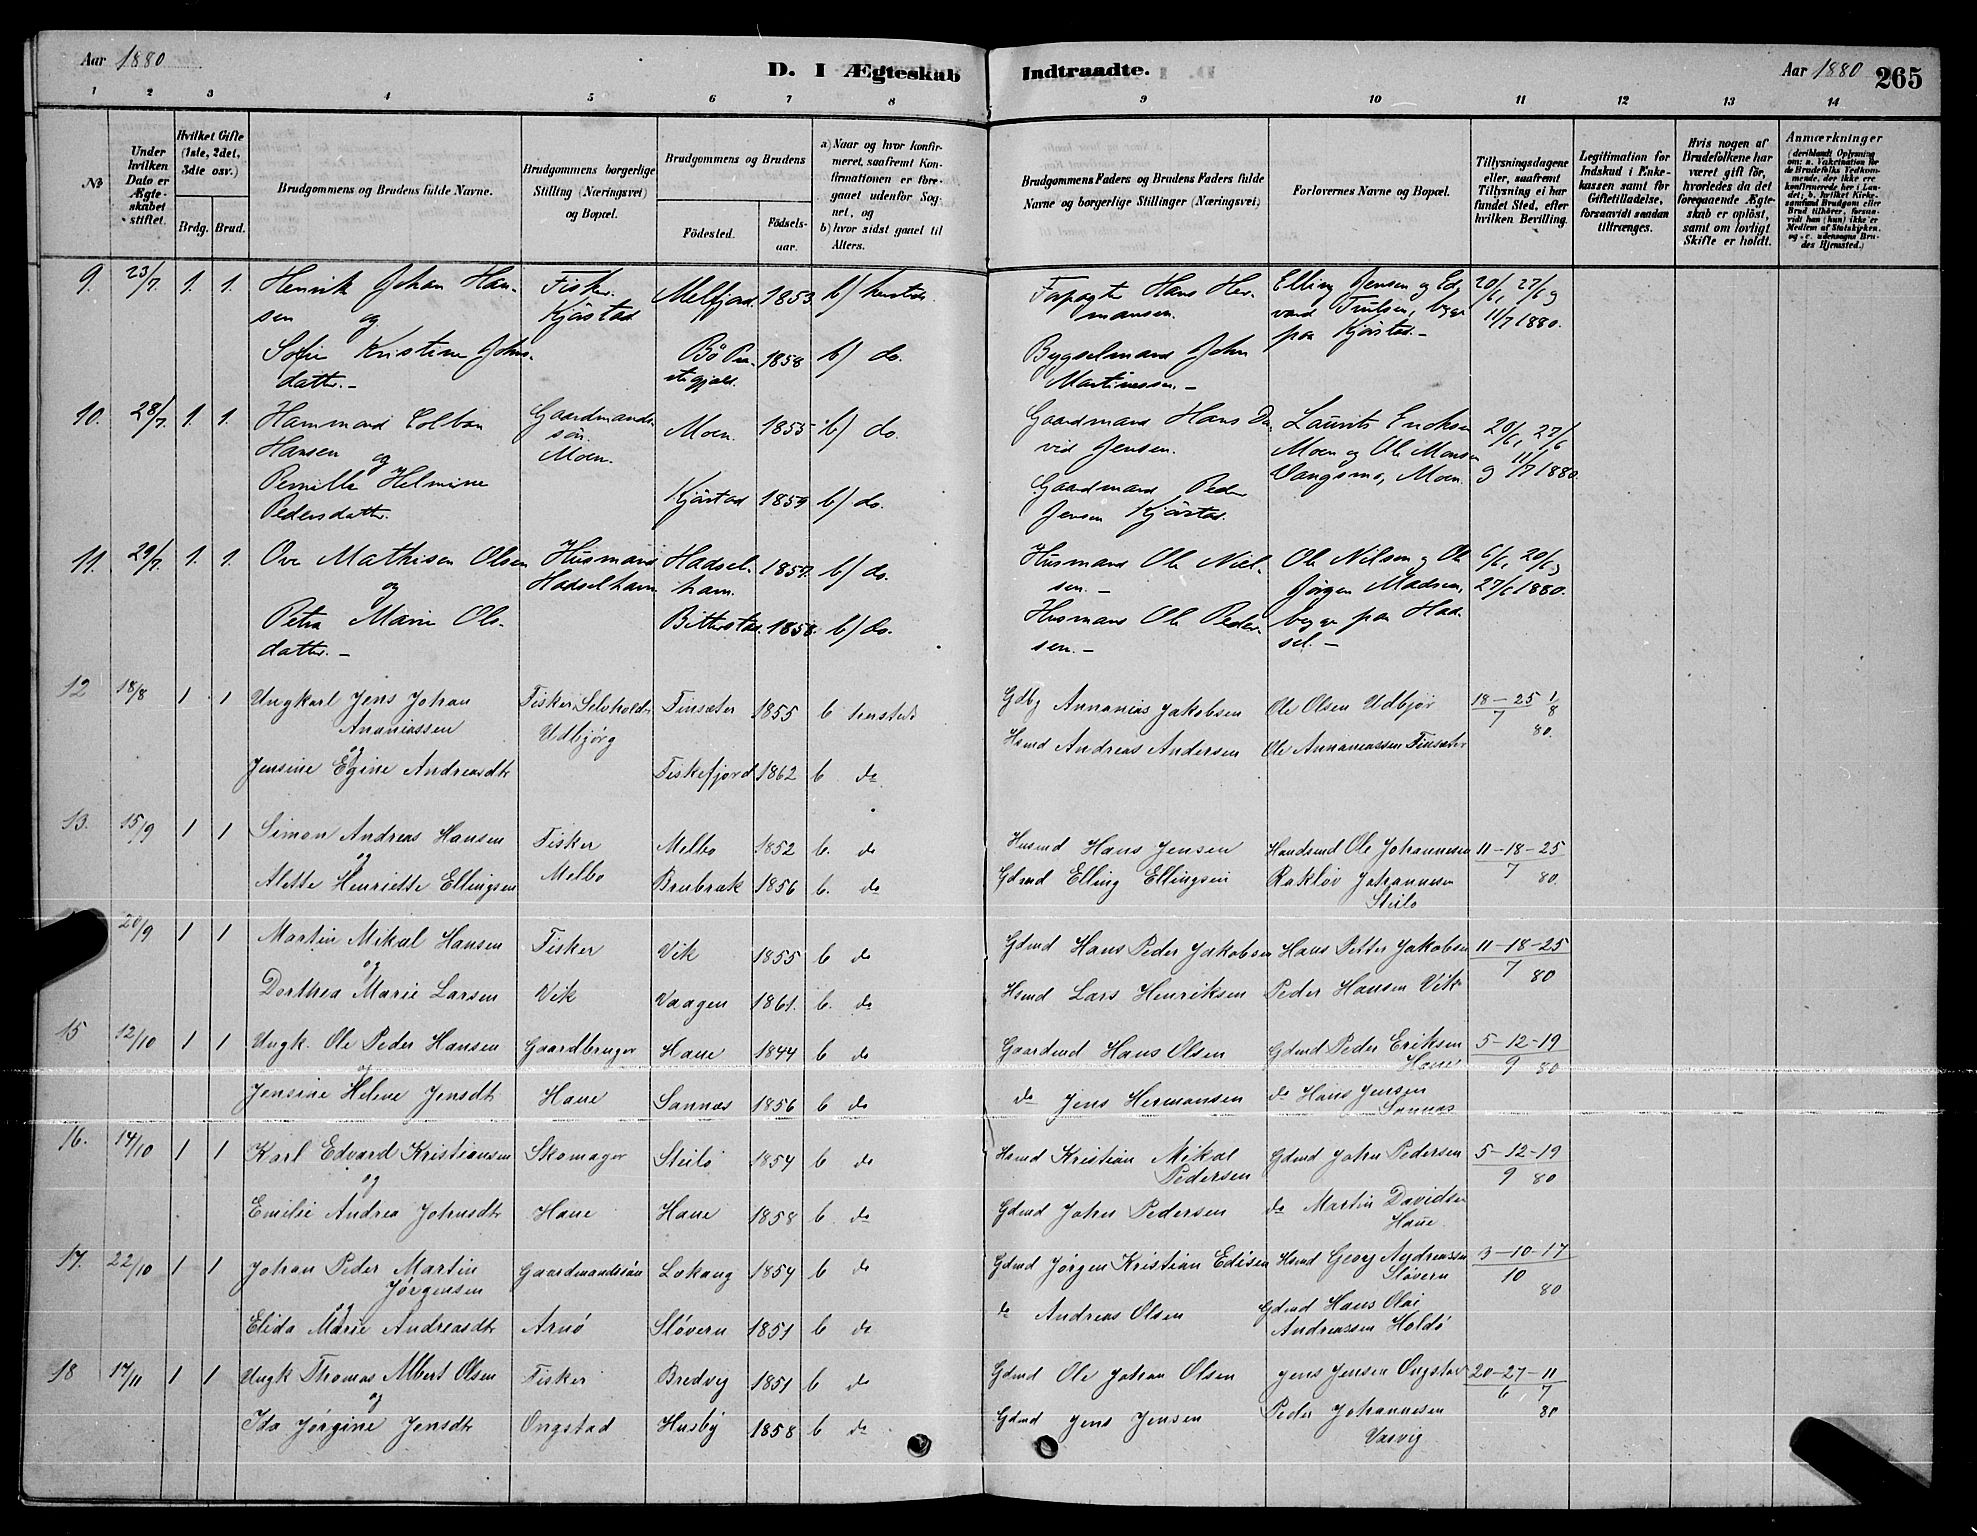 Aar 1880
D. I Ægteskab Indtraadte.
Aar 1880 265
1 2 3 4 5 6 7 8 9 10 11 12 13 14
№
Under hvilken Dato er Ægteskabet stiftet.
Hvilket Gifte (1ste, 2det, 3die osv.)
Brdg. Brud.
Brudgommens og Brudens fulde Navne.
Brudgommens borgerlige Stilling (Næringsvei) og Bopæl.
Brudgommens og Brudens
Fødested. Fødselsaar.
a) Naar og hvor konfirmeret, saafremt Konfirmationen er foregaaet udenfor Sognet, og
b) hvor sidst gaaet til Alters.
Brudgommens Faders og Brudens Faders fulde Navne og borgerlige Stillinger (Næringsvei)
Forlovernes Navne og Bopæl.
Tillysningsdagene eller, saafremt Tillysning ei har fundet Sted, efter hvilken Bevilling.
Legitimation for Indskud i Enkekassen samt for Giftetilladelse, forsaavidt saadan tiltrænges.
Hvis nogen af Brudefolkene har været gift før, hvorledes da det foregaaende Ægteskab er opløst, samt om lovligt Skifte er holdt.
Anmærkninger
9. 23/7. 1. 1. Henrik Johan Han- Fisker. Melfjord 1853. b) hersteds. Hans Her- Elling Jensen og Ed- 20/6, 27/6 og
sen og Kjørstad mansen. vard Trulsen, begge 11/7 1880.
Sofie Kristine Johns- Bö Præ- 1858 b) do. Bygselmand John paa Kjørstad.-
datter.- stegjæld. Martinussen.-
10. 28/7. 1. 1. Hammond Colban Gaardmands- Moen. 1855 b) do. Gaardmand Hans Da- Laurits Eriksen 20/6, 27/6
Hansen og søn. vid Jensen. Moen og Ole Monsen 11/7 1880.
Pernille Helmine Moen. Kjørstad 1859 b) do. Gaardmand Peder Vangsmo, Moen.
Pedersdatter. Jensen Kjørstad.
11. 29/7. 1. 1. Ove Mathisen Olsen Husmand Hadsel- 1857. b) do. Husmand Ole Niel- Ole Nilsen og Ole 6/6, 20/6 og
og Hadselhavn havn. sen.- Jørgen Madsen, 27/6 1880.
Petra Marie Ols- Bitterstad. 1858. b) do. Husmand Ole Peder- begge paa Had-
datter.- sen.- sel.-
12 18/8 1 1 Ungkarl Jens Johan Fisker Selvholder Finsæter 1855 b hersteds Gdbg Annanias Jakobsen Ole Olsen Udbjør 18-25 1/8
Ananiassen Udbjørg 7 80.
og Hsmd Andreas Andersen Ole Annaniassen Finsæter
Jensine Egine Andreasdtr Fiskefjord 1862 b do
13. 15/9 1 1 Simon Andreas Hansen Fisker Melbo 1852 b. do Husmd Hans Jensen Handsmd Ole Johannesen 11-18-25
og Melbo 7 80.
Alette Henriette Ellingsen 1856 b. do Gdmd Elling Ellingsen Johannesen
Steilo
20/9 1 1 Martin Mikal Hansen Fisker Vik 1855 b do Gdmd Hans Peder Jakobsen Hans Petter Jakobsen 11-18-25
og 7 80
Dorthea Marie Larsen Vik Vaagen 1861. b. do Hsmd Lars Henriksen Peder Hansen Vik
15 12/10 1 1 Ungk. Ole Peder Hansen Gaardbruger Haue 1844 b do Gaardmd Hans Olsen Gdmd Peder Eriksen 5-12-19
og Haue 9 80
Jensine Helene Jensdtr Haue Sannas 1856 b do do Jens Hermansen do Hans Jensen
Sannas
16. 14/10 1 1 Karl Edvard Kristiansen Skomager Steilo 1854 b do Hsmd Kristian Mikal Gdmd John Pedersen 5-12-19
og Pedersen 9 80
Emilie Andrea Johnsdtr Haue Haue 1858 b. do Gdmd John Pedersen do Martin Davidsen
Haue.
17. 22/10 1 1 Johan Peder Martin Gaardmandssøn Lokang 1854 b do Gdmd Jørgen Kristian Edisen Hsmd Georg Andreassen 3-10-17
Jørgensen Sløvern 10
og do Andreas Olsen Gdmd Hans Olai 80
Elida Marie Andreasdtr Arnø Sløvern 1851 b do Andreassen Holdö
18 17/11 1 1 Ungk Thomas Albert Olsen Fisker Bredvig 1851 b do Gdmd Ole Johan Olsen Jens Jensen Ongstad 20-27-11
og 6 7
Ida Jørgine Jensdtr Ongstad Husby 1858 b do Gdmd Jens Jensen Peder Johannesen 80
Vasvig